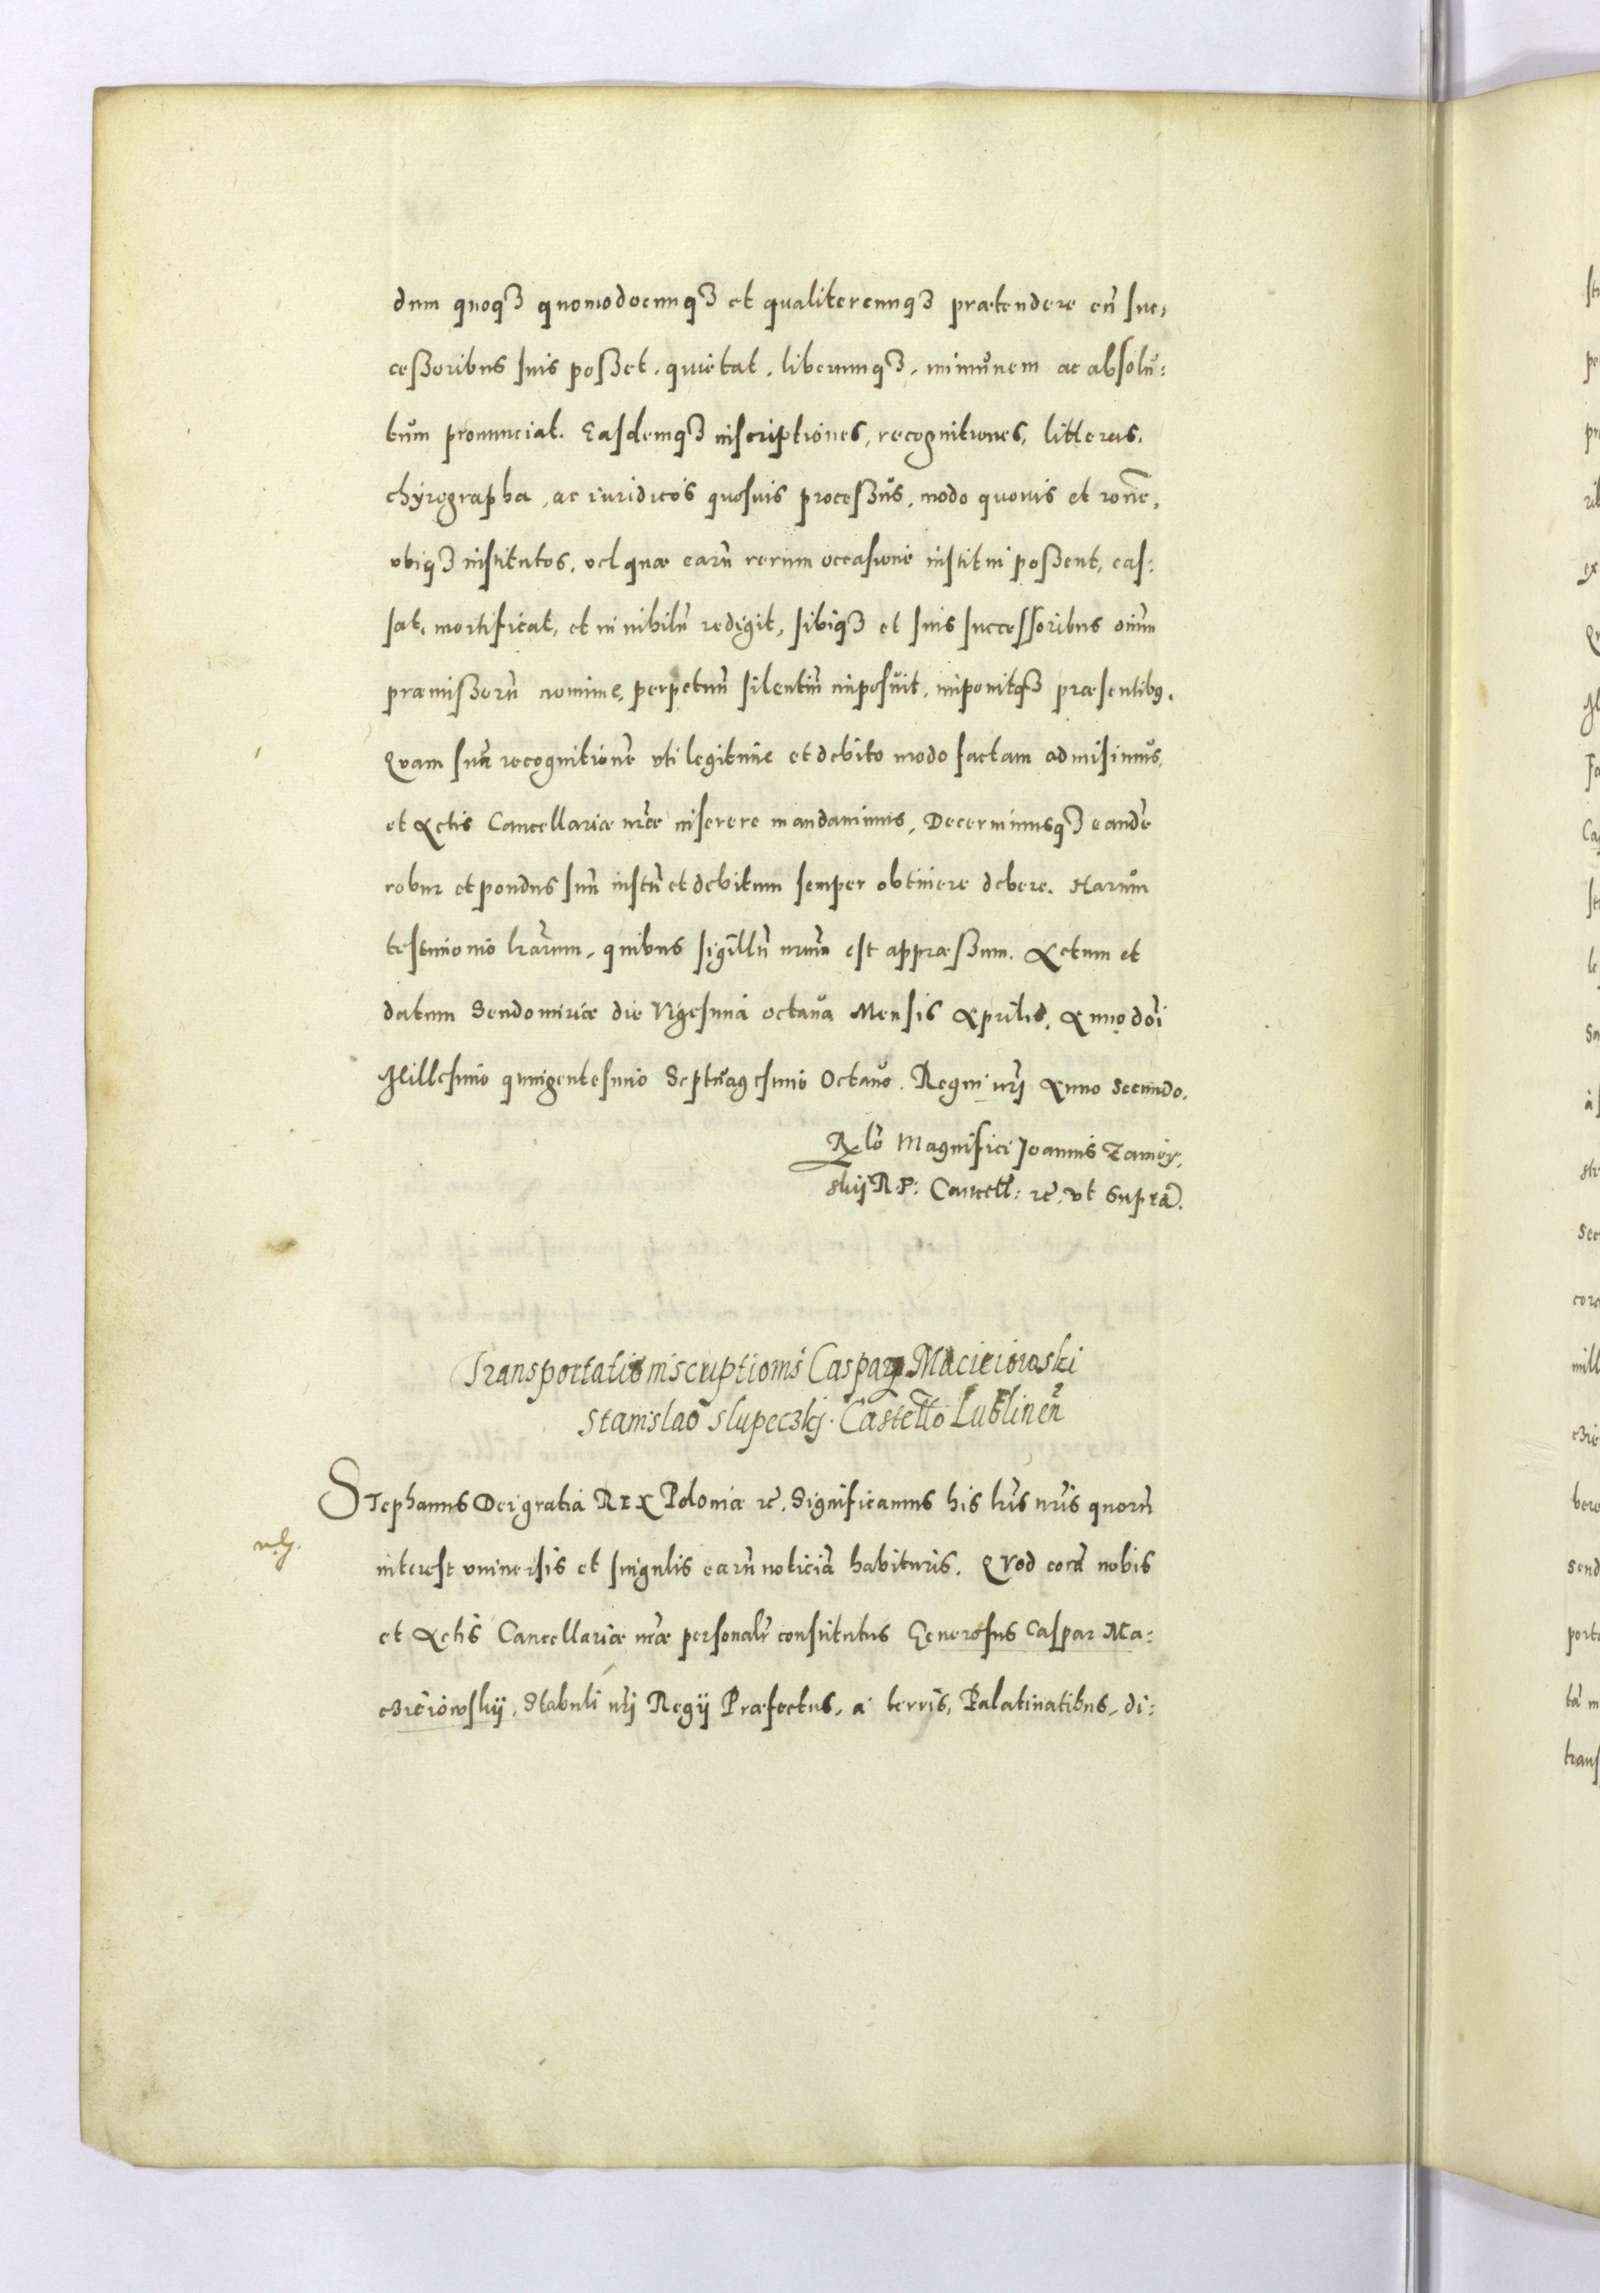 dum quoqʒ quomodocunqʒ et qualitercunqʒ prætendere cũ suc,
ceßoribus suis poßet, quietat, liberumqʒ, immunem ac absolu:
tum pronunciat. Easdemqʒ inscriptiones, recognitiones, litteras,
chÿrographa, ac iuridicos quosuis proceßus, modo quouis et rõne,
vbiqʒ institutos, vel quæ earũ rerum occasione institui poßent, cas:
sat, mortificat, et in nihilũ redigit, sibiqʒ et suis successoribus oĩum
præmißorũ nomine, perpetuũ silentiũ imposuit, imponitqʒ præsentibꝫ.
Quam suã recognitionẽ vti legitime et debito modo factam admisimus,
et Actis Cancellariæ nr̃æ inserere mandauimus, Decernimusqʒ eandẽ
robur et pondus suũ iustũ et debitum semper obtinere debere. Harum
testimonio lr̃arum, quibus sigillũ nr̃um est appræßum. Actum et
datum Sendomiriæ die Vigesima octaua Mensis Aprilis, Anno doĩ
Millesimo quingentesimo Septuagesimo Octauo. Regni nr̃i Anno Secundo.
Rlõ Magnifici Joannis Zamoÿ,
skij R. P. Cancell: rc̃. vt Supra.
Transportatio inscriptionis Caspari Macieiowski
Stanislao Slupeczkj. Castell̃o Lublineñ
Stephanus Dei gratia REX Poloniæ rc̃. Significamus his lr̃is nr̃is quorũ
interest vniuersis et singulis earũ noticiã habituris. Quod corã nobis
et Actis Cancellariæ nr̃æ personalr̃ constitutus Generosus Caspar Ma:
czieiowskij, Stabuli nr̃j Regij Præfectus, a terris, Palatinatibus, di: